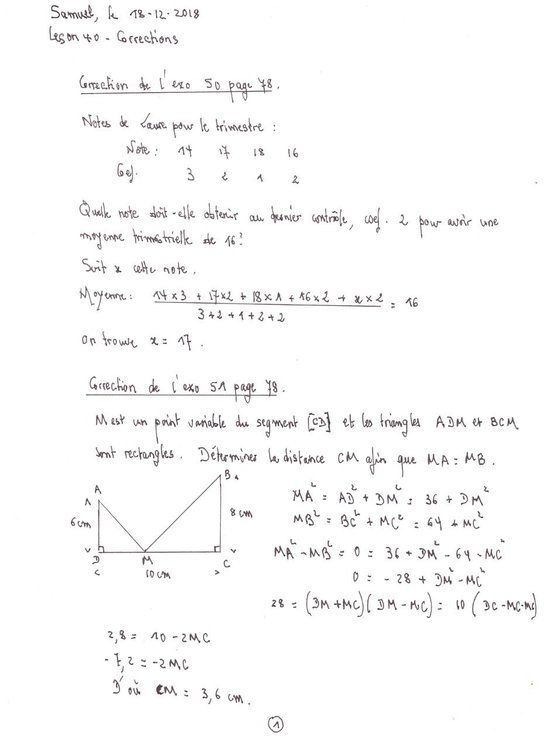 Samuel, le 18-12-2018
Leçon 40 - Corrections
Correction de l'exo 50 page 78.
Notes de Laura pour le trimestre :
Note : 14 17 18 16
Coef. 3 2 1 2
Quelle note doit-elle obtenir au dernier contrôle, coef. 2 pour avoir une
moyenne trimestrielle de 16?
Soit x cette note.
Moyenne : (14×3 + 17×2 + 18×1 + 16×2 + x×2) / (3+2+1+2+2) = 16
On trouve x = 17.
Correction de l'exo 51 page 78.
M est un point variable du segment [CD] et les triangles ADM et BCM
sont rectangles. Déterminer la distance CM afin que MA = MB.
A
B
6 cm
8 cm
D M C
10 cm
MA² = AD² + DM² = 36 + DM²
MB² = BC² + MC² = 64 + MC²
MA² - MB² = 0 = 36 + DM² - 64 - MC²
0 = - 28 + DM² - MC²
28 = (DM + MC)(DM - MC) = 10 (DC - MC - MC)
2,8 = 10 - 2MC
- 7,2 = - 2MC
D'où CM = 3,6 cm.
1